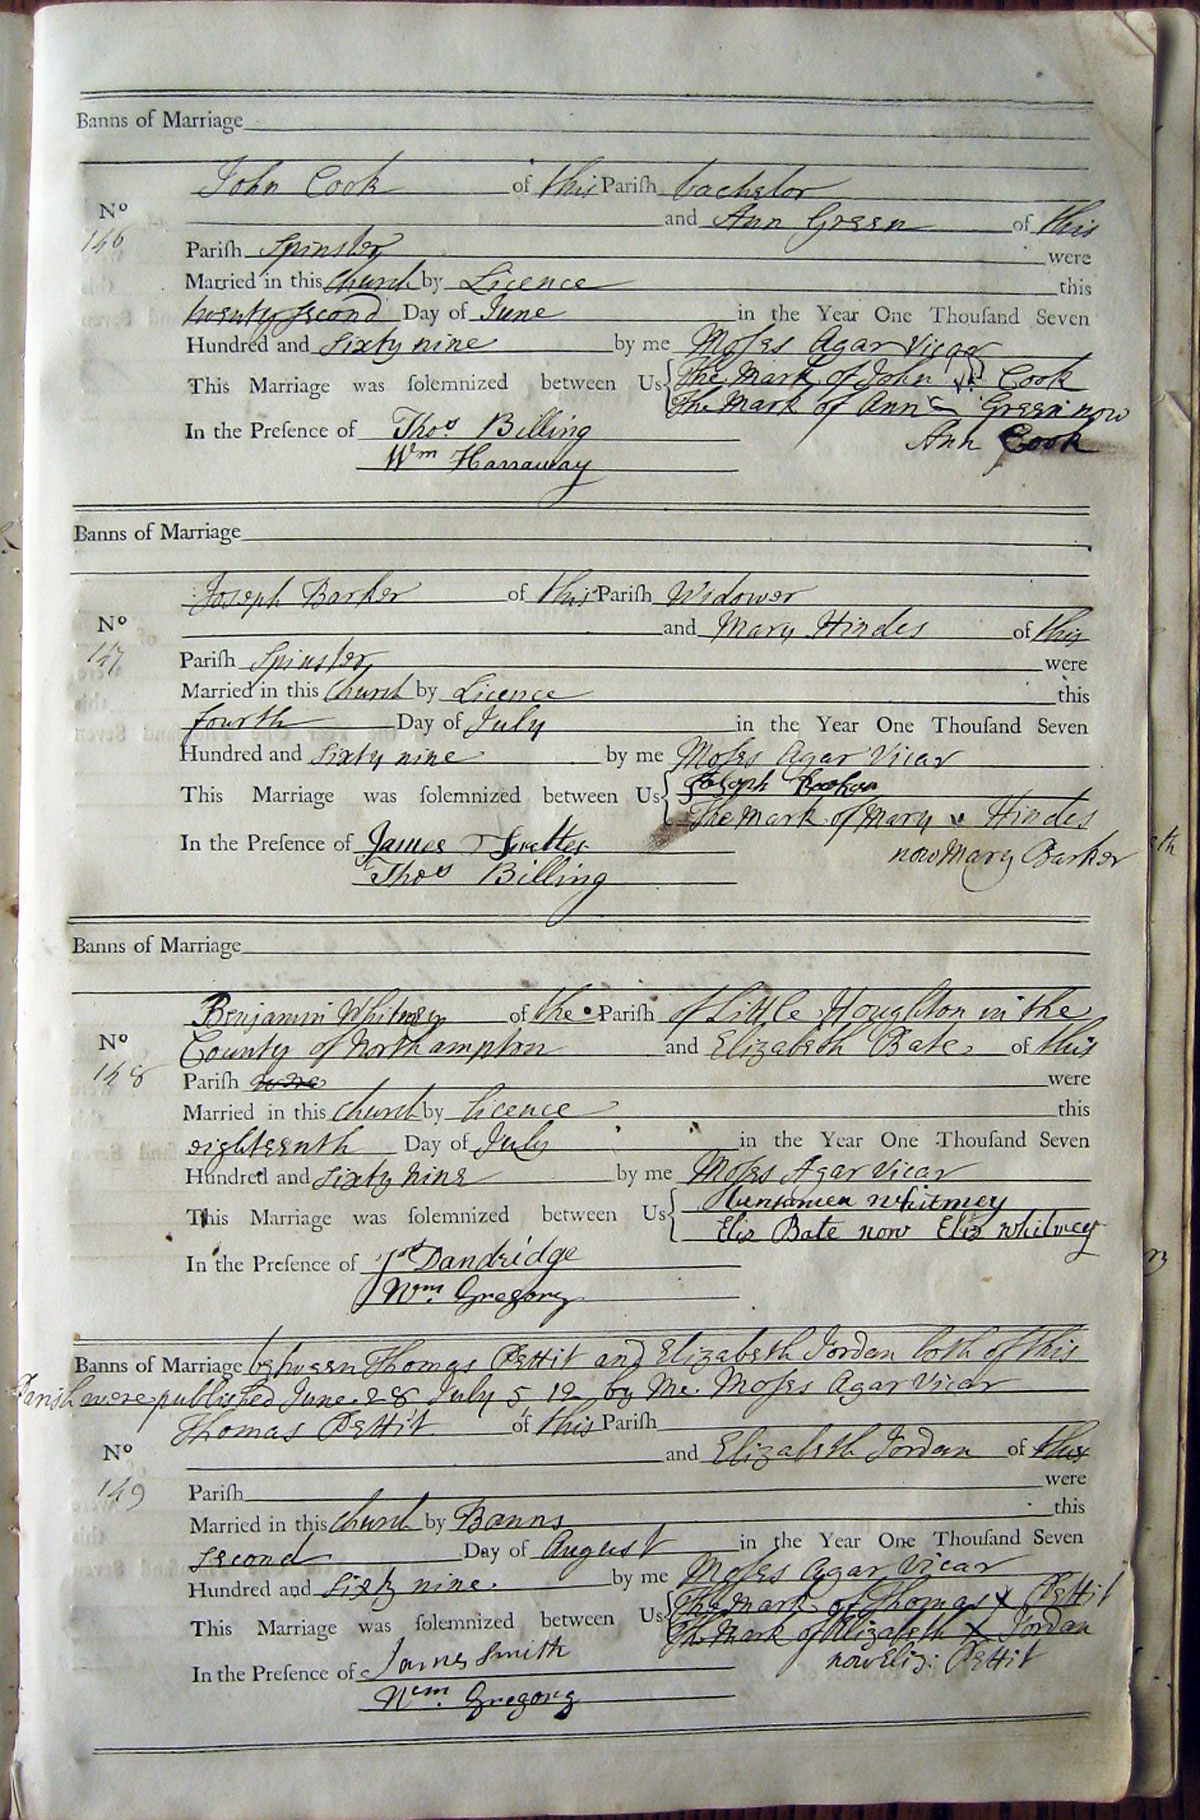 Banns of Marriage
John Cook of this Pariſh bachelor
No 146 and Ann Green of this
Pariſh Spinster were
Married in this Church by Licence this
twenty second Day of June in the Year One Thouſand Seven
Hundred and Sixty nine by me Moses Agar Vicar
This Marriage was ſolemnized between Us The Mark of John Cook
The Mark of Ann Green now
Ann Cook
In the Preſence of Thos. Billing
Wm Harraway
Banns of Marriage
Joseph Barker of this Pariſh Widower
No 147 and Mary Hindes of this
Pariſh Spinster were
Married in this Church by Licence this
fourth Day of July in the Year One Thouſand Seven
Hundred and Sixty nine by me Moses Agar Vicar
This Marriage was ſolemnized between Us Joseph
The Mark of Mary Hindes
now Mary Barker
In the Preſence of James
Thos Billing
Banns of Marriage
Benjamin Whitney of the Pariſh of Little Houghton in the
No 148 County of Northampton and Elizabeth Bate of this
Pariſh were were
Married in this Church by Licence this
eighteenth Day of July in the Year One Thouſand Seven
Hundred and Sixty nine by me Moses Agar Vicar
This Marriage was ſolemnized between Us Whitney
Eliz Bate now Eliz Whitney
In the Preſence of Dandridge
Wm. Gregory
Banns of Marriage between Thomas Pettit and Elizabeth Jordan both of this
Parish were published June 28 July 5, 12 by Me. Moses Agar Vicar
Thomas Pettit of this Pariſh
No 149 and Elizabeth Jordan of this
Pariſh were
Married in this Church by Banns this
Second Day of August in the Year One Thouſand Seven
Hundred and Sixty nine. by me Moses Agar Vicar
This Marriage was ſolemnized between Us The Mark of Thomas X Pettit
The Mark of Elizabeth X Jordan
now Eliz: Pettit
In the Preſence of James Smith
Wm. Gregory